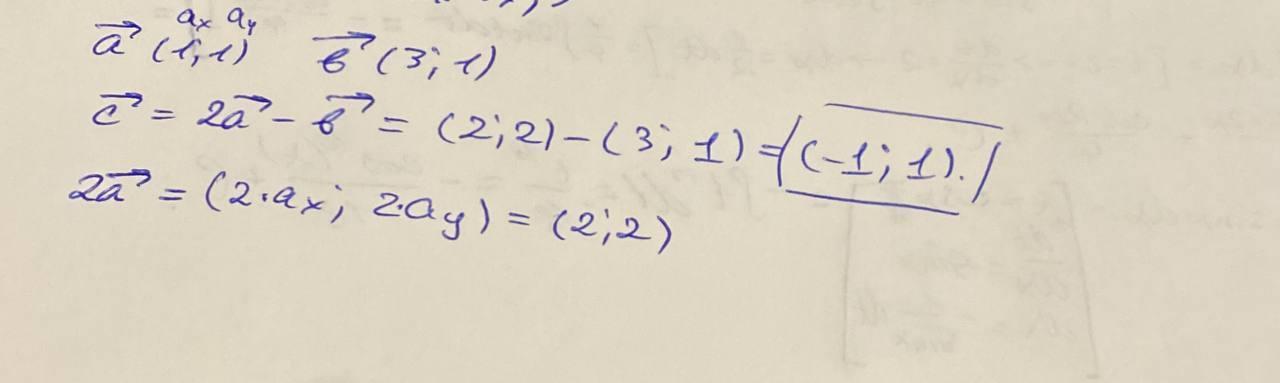 aₓ aᵧ
a⃗ (1;1) b⃗ (3;1)
c⃗ = 2a⃗ - b⃗ = (2;2)-(3;1)=(-1;1).
2a⃗ = (2·aₓ; 2·aᵧ) = (2;2)